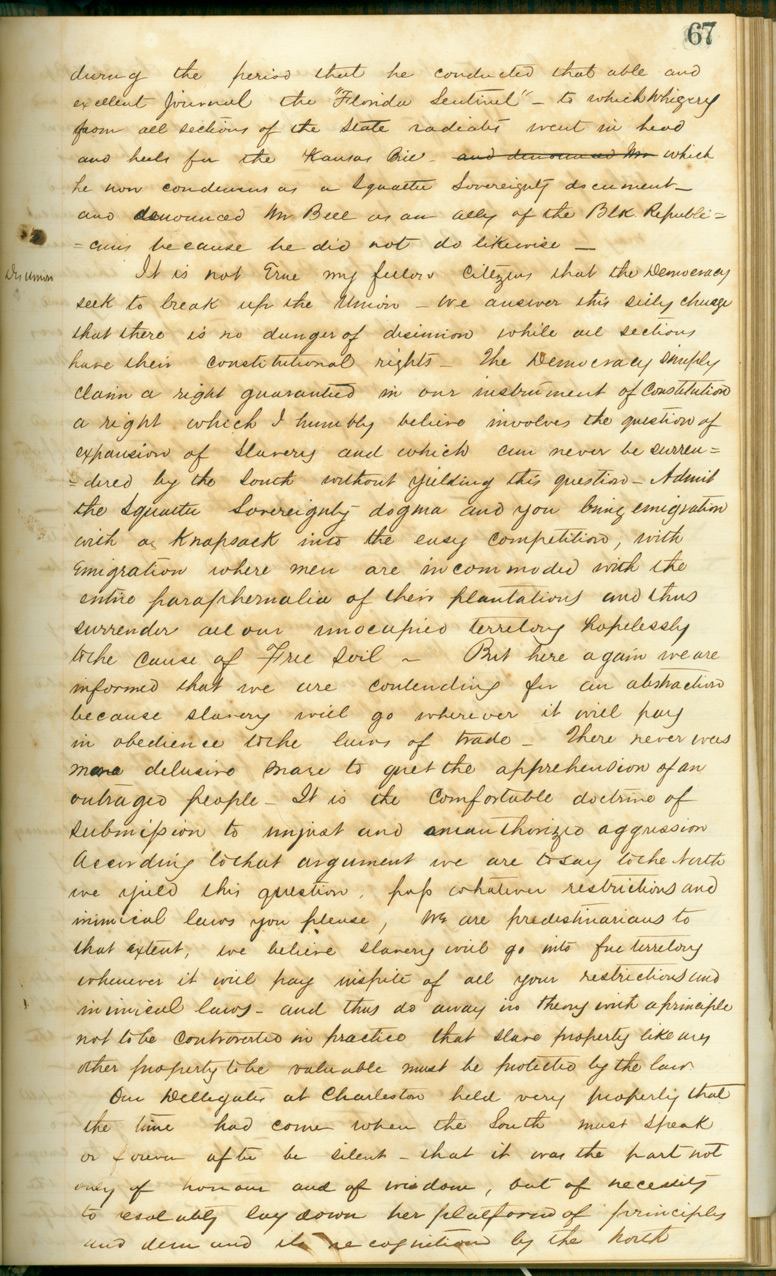 67
during the period that he conducted that able and
excellent Journal the "Florida Sentinel" – to which Whigery
from all sections of the State radiates went in head
and heels for the Kansas Bill – and denounced Mr which
he now condemns as a Squatter Sovereignty document –
and denounced Mr Bell as an ally of the Blk Republi=
=cans because he did not do likewise –
Dis union
It is not True my fellow Citizens that the Democracy
seek to break up the Union – We answer this silly charge
that there is no danger of disunion while all sections
have their constitutional rights – The Democracy simply
claim a right guarantied in our instrument of Constitution
a right which I humbly believe involves the question of
expansion of Slavery and which can never be surren=
=dered by the South without yielding this question – Admit
the Squatter Sovereignty dogma and you bring emigration
with a Knapsack into the easy competition, with
Emigration where men are incommoded with the
entire paraphernalia of their plantations and thus
surrender all our unocupied territory hopelessly
to the Cause of Free Soil – But here again we are
informed that we are contending for an abstraction
because slavery will go wherever it will pay
in obedience to the laws of trade – There never was
more delusive snare to quet the apprehension of an
outraged people – It is the Comfortable doctrine of
submission to unjust and unauthorized aggression
According to that argument we are to say to the North
we yield this question, pass whatever restrictions and
inimical laws you please, We are predestinarians to
that extent, we believe slavery will go into free territory
whenever it will pay inspite of all your restrictions and
inimical laws – and thus do away in theory with a principle
not to be controverted in practice that slave property like any
other property to be valuable must be protected by the law
Our Dellegates at Charleston held very properly that
the time had come when the South must speak
or forever after be silent – that it was the part not
only of honour and of wisdom, but of necessity
to resolutely lay down her platform of principles
and demand its recognition by the North